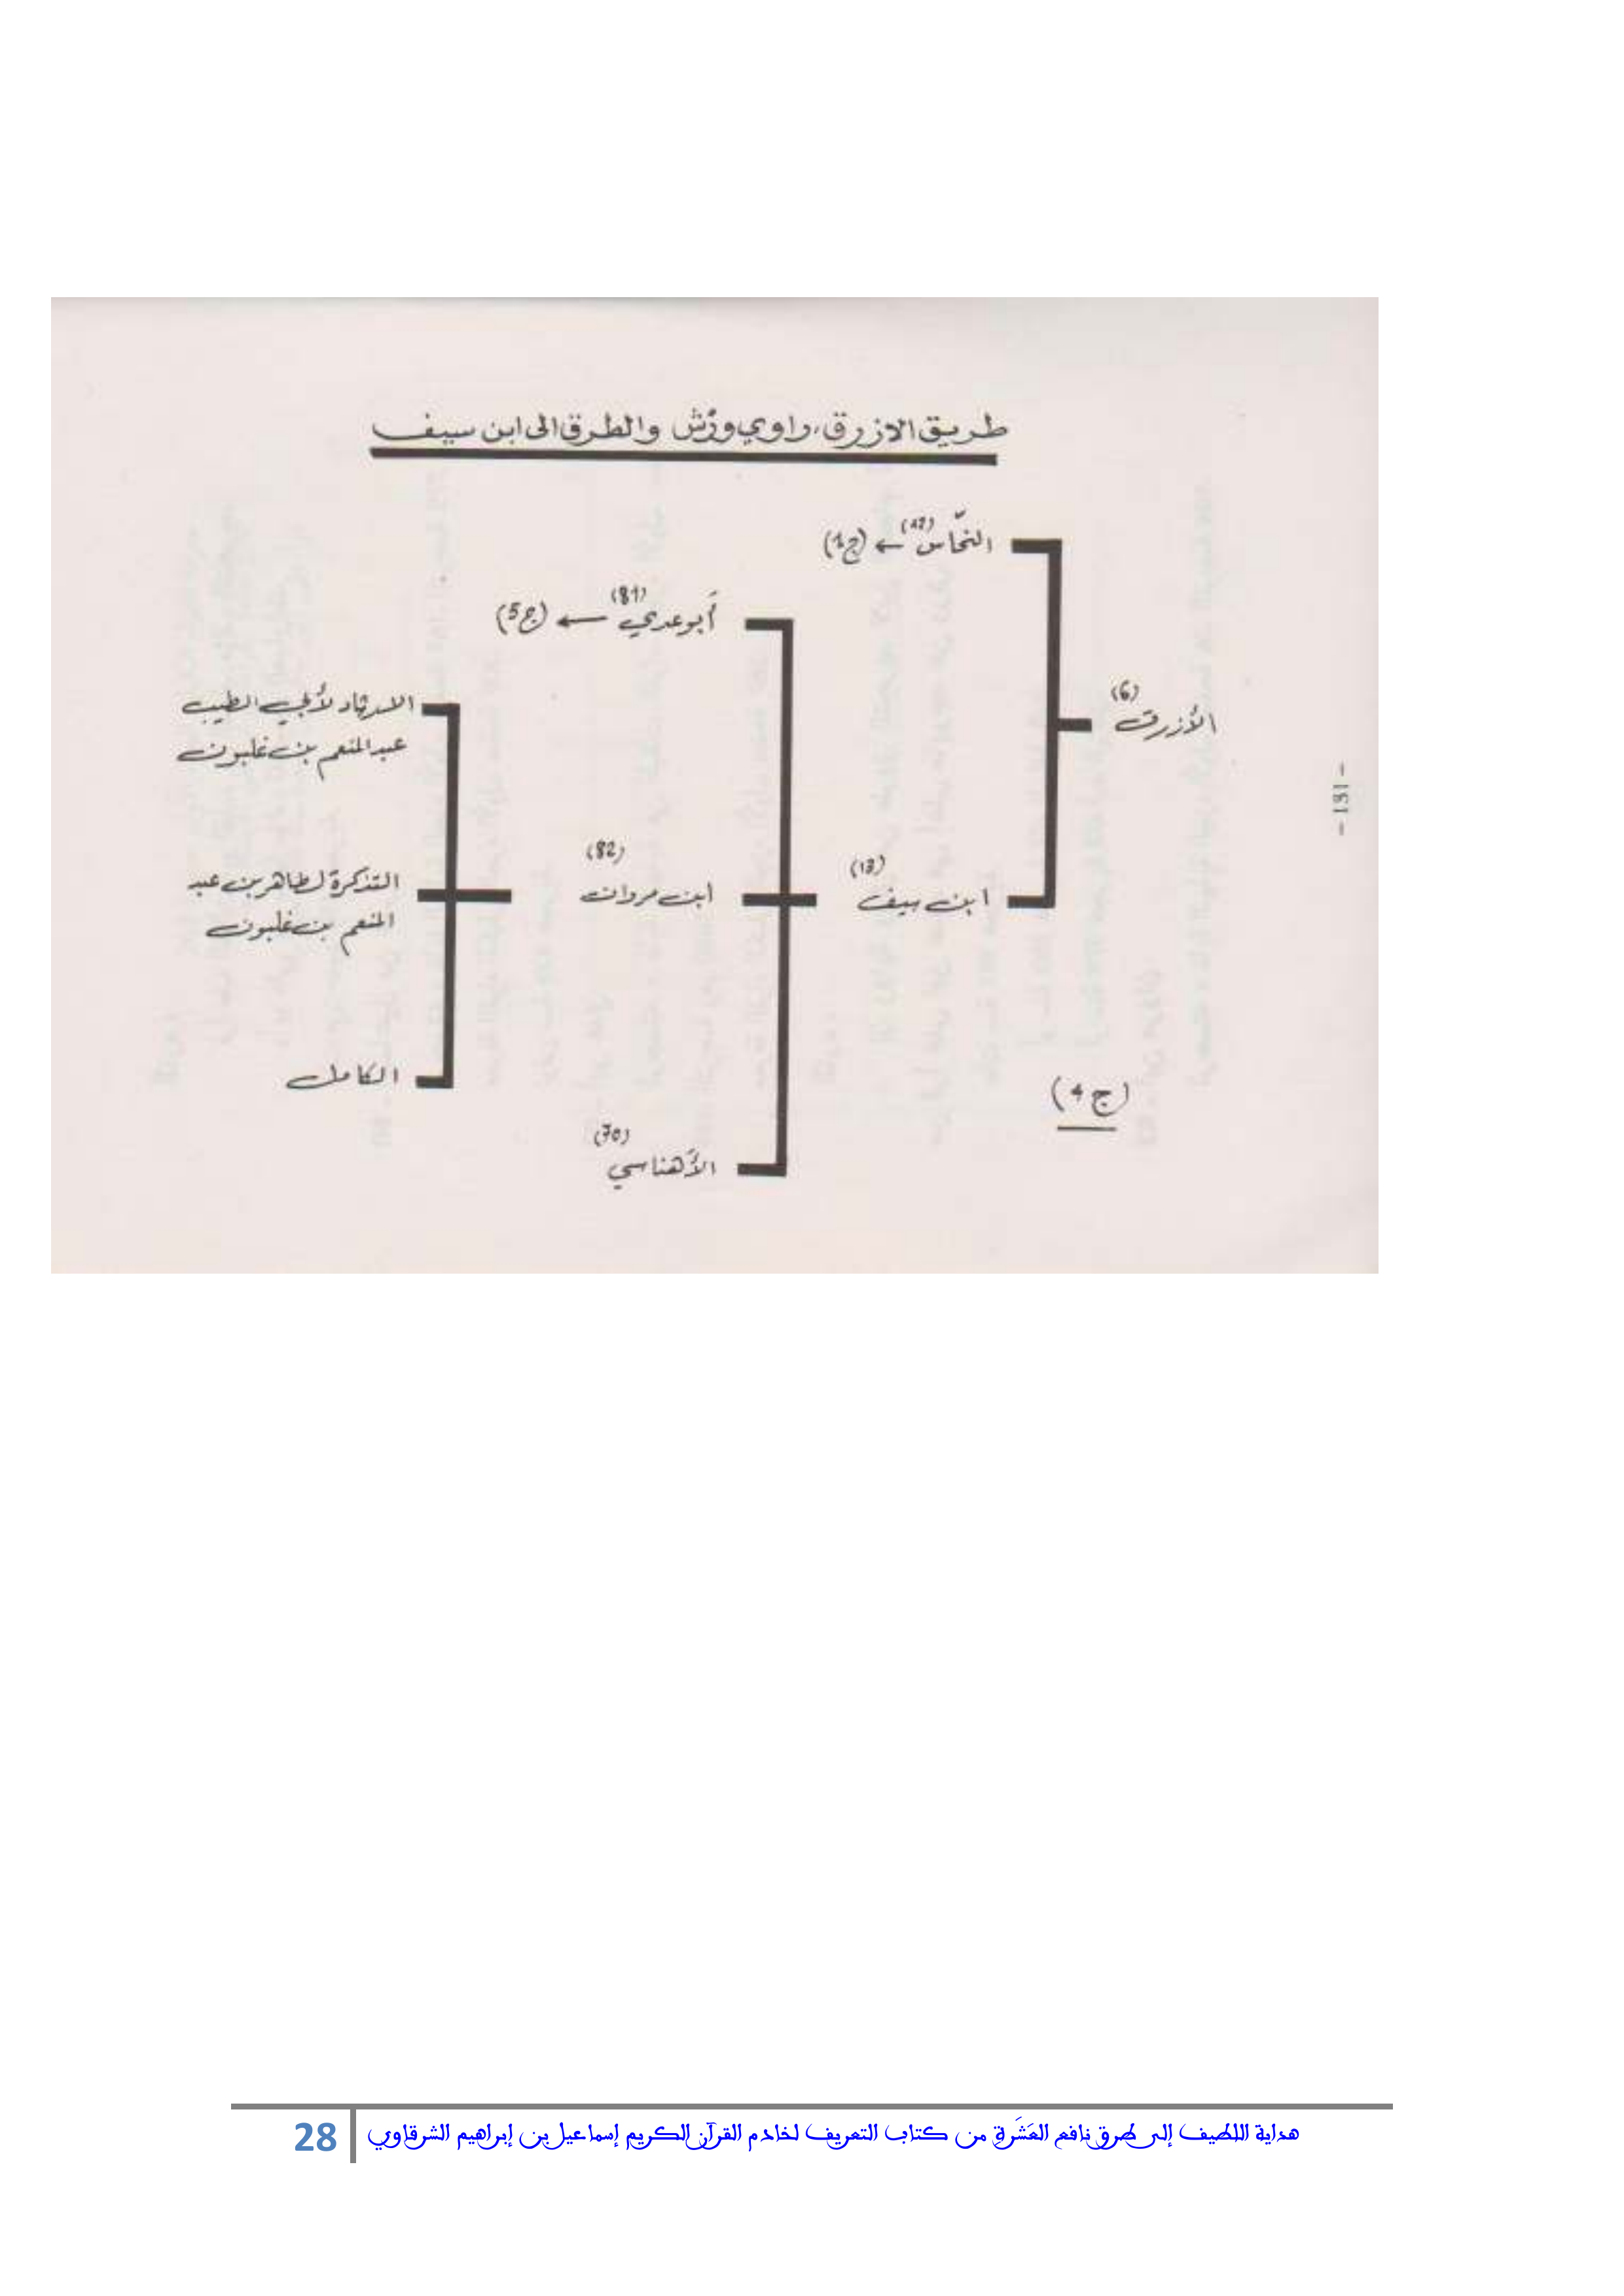 طريق الازرق، راوي ورْش والطرق الى ابن سيف
النحّاس (12) ← (ج1)
أبو عدي (81) ← (ج5)
الأزرق (6)
الارشاد لأبي الطيب
عبد المنعم بن غلبون
- 131 -
ابن سيف (13)
ابن مروان (82)
التذكرة لطاهر بن عبد
المنعم بن غلبون
الكامل
(ج 4)
الأهناسي (70)
هداية اللطيف إلى طرق نافع العَشَرة من كتاب التعريف لخادم القرآن الكريم إسماعيل بن إبراهيم الشرقاوي 28